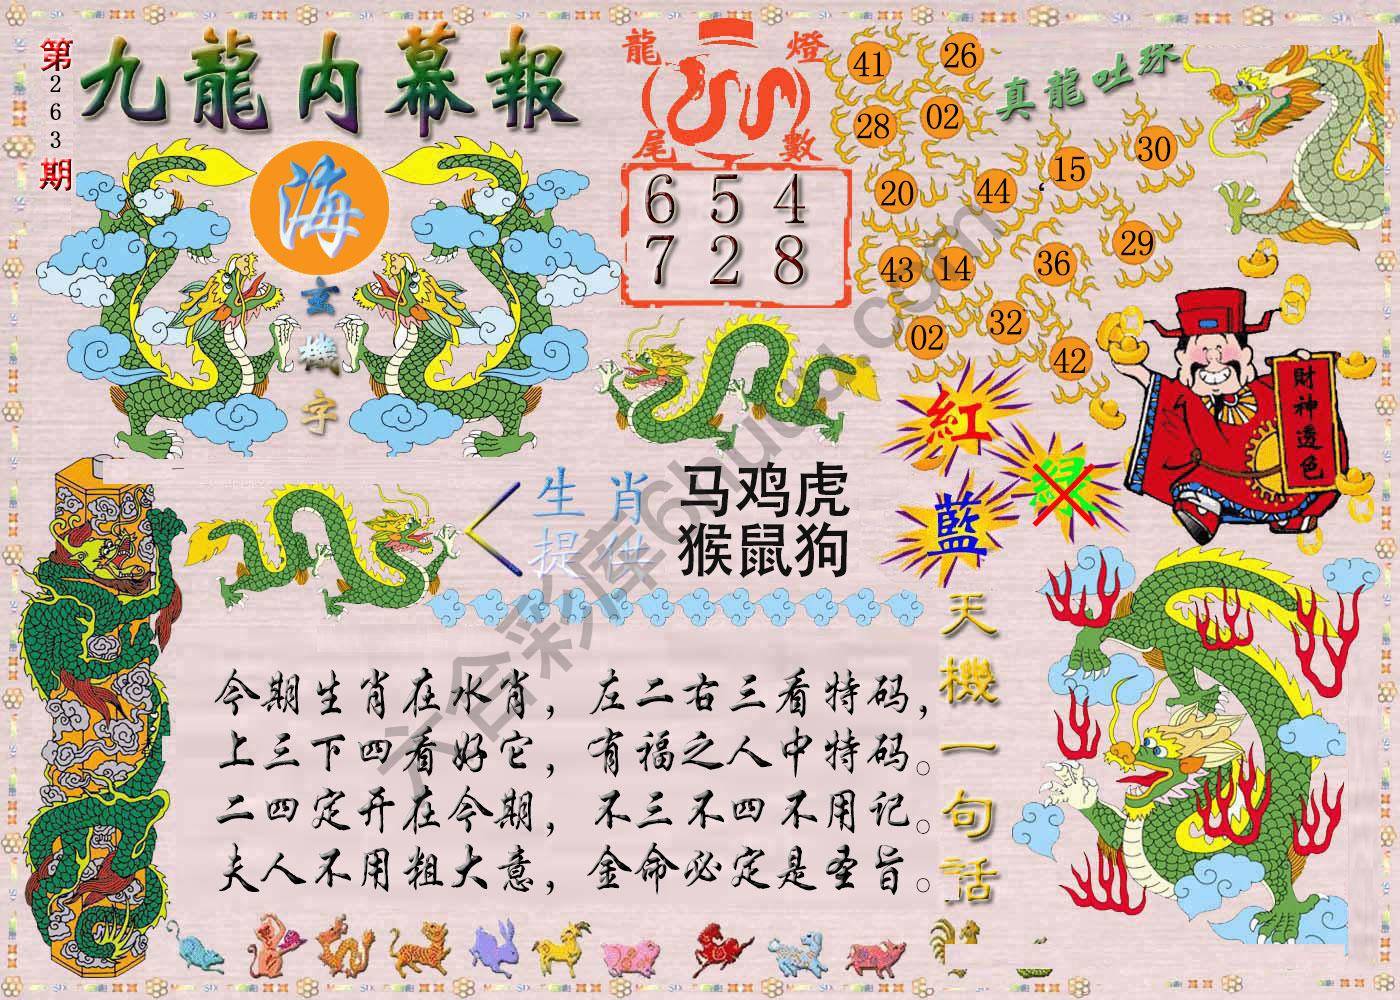 第263期
九龍内幕報
海
玄機字
龍燈
尾數
6 5 4
7 2 8
真龍吐珠
41 26
28 02
20 44 15 30
43 14 36 29
02 32 42
財神透色
紅
綠
藍
生肖
提供
马鸡虎
猴鼠狗
天機一句話
今期生肖在水肖，左二右三看特码，
上三下四看好它，有福之人中特码。
二四定开在今期，不三不四不用记。
夫人不用粗大意，金命必定是圣旨。
六合彩库6hudd.com